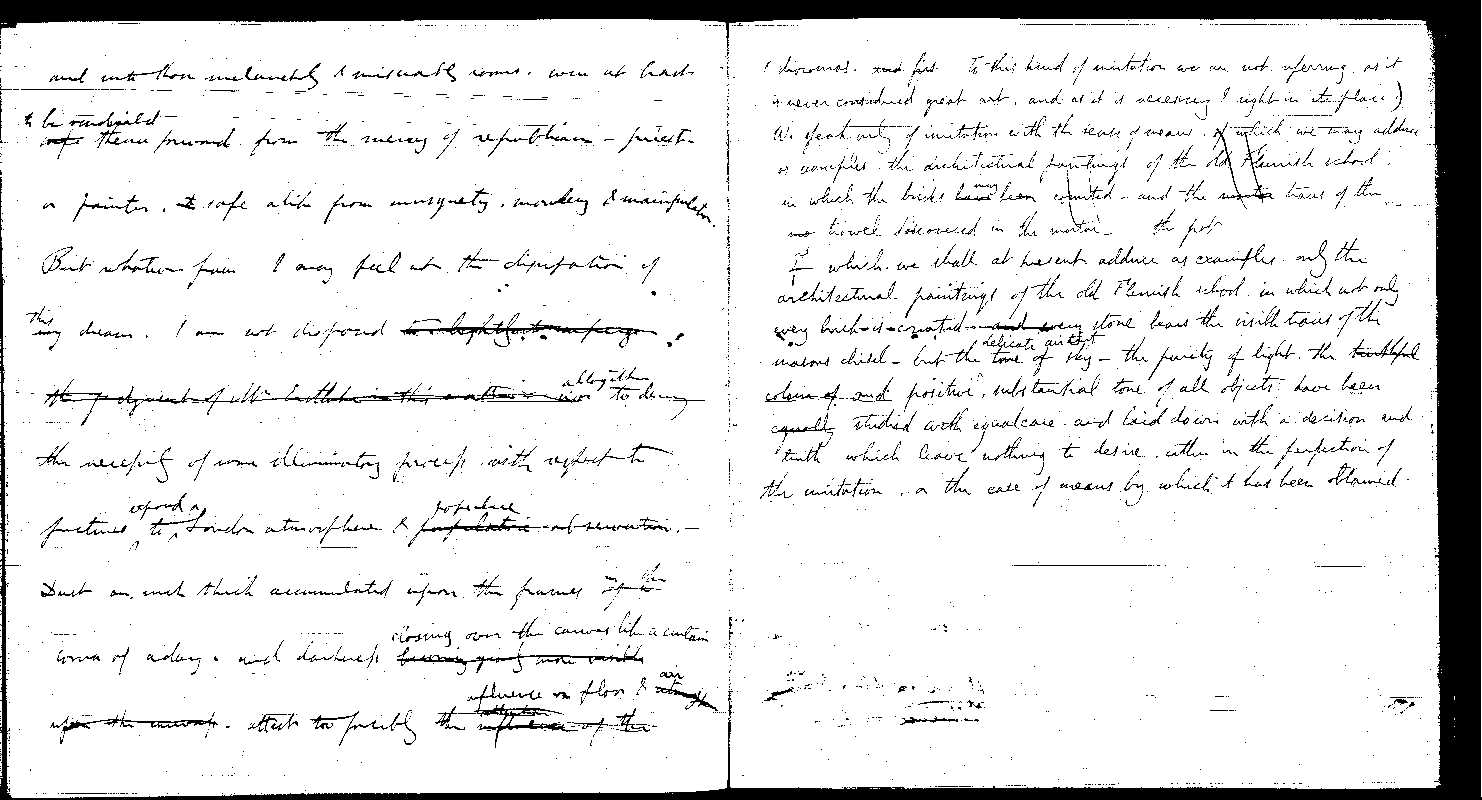 and into those melancholy & miserable rooms. were at least
to be vindicated
safe thence forward from the mercy of republican - priest
or painter, safe alike from musquetry, monkery & manipulation.
But whatever pain I may feel at the dissipation of
this
my dream, I am not disposed to
the judgment of Mr Eastlake in this matter altogether to deny
the necessity of some illuminatory process with respect to
exposed a populace
pictures to London atmosphere & population observation. -
Dust an inch thick accumulated upon the frames in the
closing over the canvas like a curtain
course of a day. and darkness becoming yearly more visible
influence on floor & air
upon the canvas. attest too forcibly the influence of the
dioramas. and first To this kind of imitation we are not referring, as it
is never considered great art, and as it is necessary & right in its place.)
We speak only of imitation with the ease of means, of which we may adduce
as examples the architectural paintings of the old Flemish school.
in which the bricks may have been counted - and the traces of the
trowel discovered in the mortar - the pot
I which we shall at present adduce as examples only the
architectural paintings of the old Flemish school in which not only
every brick is counted - and every stone bears the visible traces of the
delicate
masons chisel - but the tone of sky - the purity of light. the truthful
colour of and positive, substantial tone of all objects have been
equally studied with equal care and laid down with a decision and
truth which leave nothing to desire either in the perfection of
the imitation, or the ease of means by which it has been obtained.